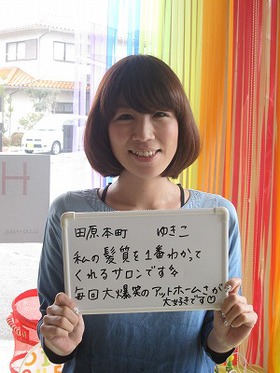 田原本町　ゆきこ
私の髪質を1番わかって
くれるサロンです
毎回大爆笑のアットホームさが
大好きです♡
H